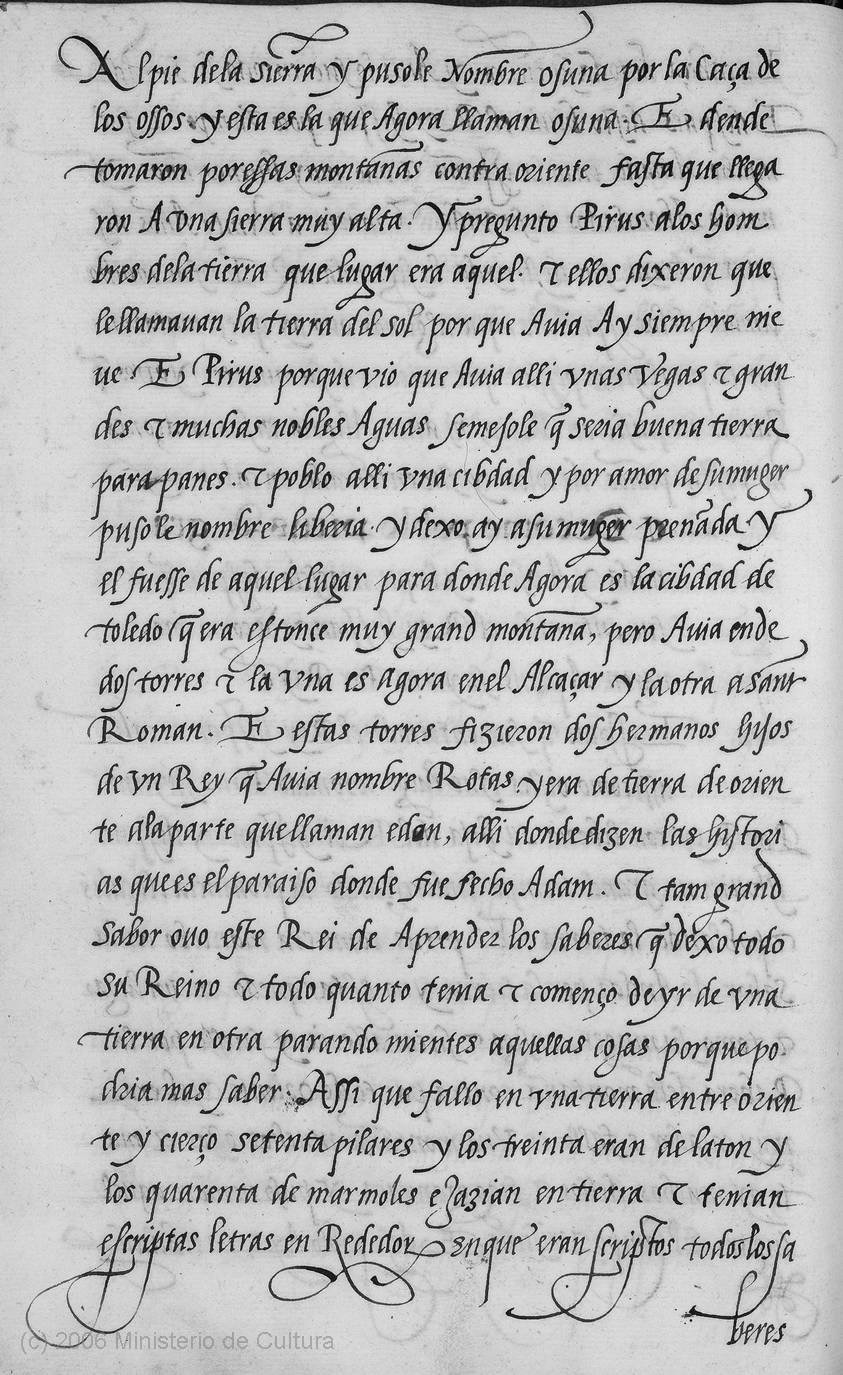 Al pie dela sierra y pusole Nombre osuna por la Caça de
los ossos. y esta es la que Agora llaman osuna. E dende
tomaron poressas montañas contra oriente fasta que llega
ron A vna sierra muy alta. Y pregunto Pirus alos hom
bres dela tierra que lugar era aquel. τ ellos dixeron que
le llamauan la tierra del sol por que Auia Ay siempre nie
ue. E Pirus porque vio que Auia alli vnas Vegas τ gran
des τ muchas nobles Aguas semesole q̃ seria buena tierra
para panes. τ poblo alli vna cibdad y por amor de su muger
pusole nombre liberia. y dexo ay asumuger preñada y
el fuesse de aquel lugar para donde Agora es la cibdad de
toledo q̃ era estonce muy grand montaña, pero Auia ende
dos torres τ la vna es agora enel Alcaçar y la otra a sant
Roman. E estas torres fizieron dos hermanos hijos
de vn Rey q̃ Auia nombre Rotas. y era de tierra de orien
te ala parte que llaman edan, alli donde dizen las histori
as que es el paraiso donde fue fecho Adam. τ tam grand
sabor ouo este Rei de Aprender los saberes q̃ dexo todo
su Reino τ todo quanto tenia τ començo de yr de vna
tierra en otra parando mientes aquellas cosas porque po
dria mas saber. Assi que fallo en vna tierra entre orien
te y cierço setenta pilares y los treinta eran de laton y
los quarenta de marmoles e Jazian en tierra τ tenian
escriptas letras en Rededor enque eran scriptos todos los sa
beres
(c) 2006 Ministerio de Cultura